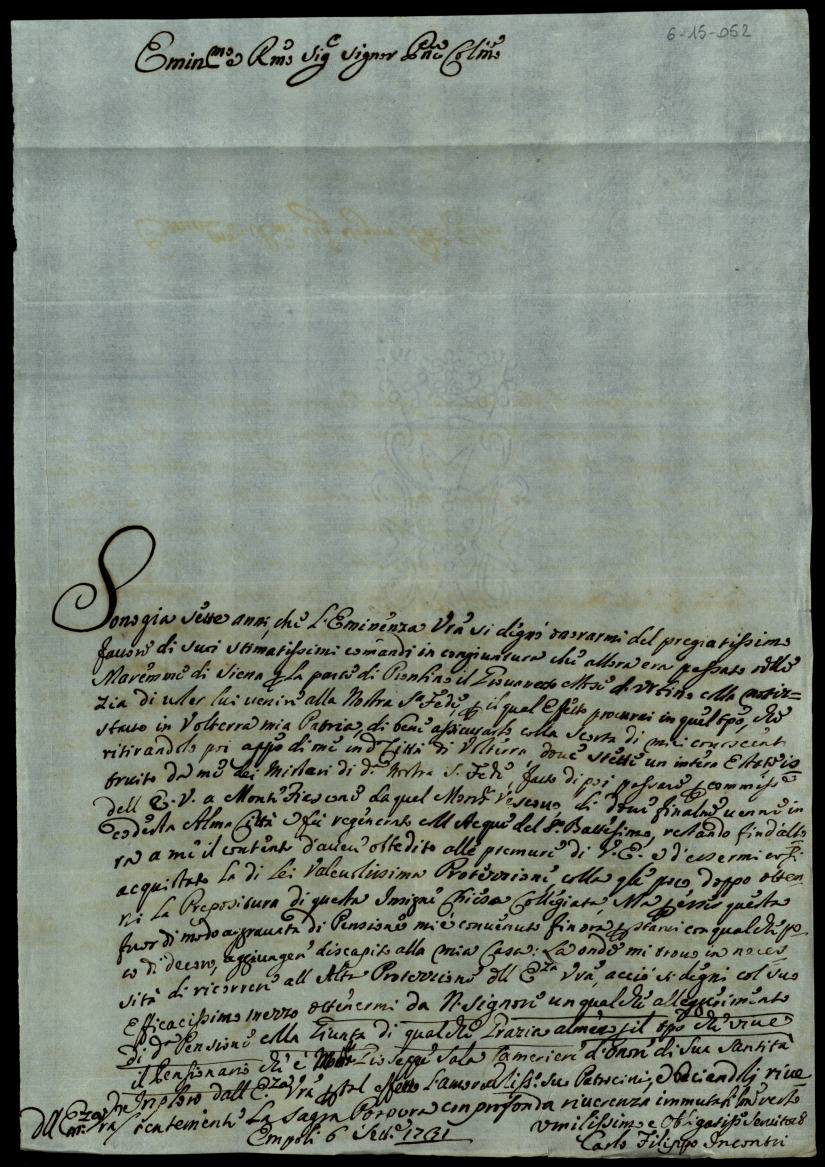 6-15-052
Emin.mo e Rmo Sig.e Signor P.ne Colmo
Sono gia sette anni, che L'Eminenza Vra si degnò onorarmi del pregiatissimo
favore di suoi stimatissimi comandi in congiuntura che allora era passato nelle
Maremme di Siena p la parte di Piombino il di Urbino colla notiz-
zia di voler lui venire alla Nostra Sa Fede, p il qual Effetto procurai in quel tpo, che
stavo in Volterra mia Patria, di bene assicurarlo colla scorta di miei conoscenti
ritirandolo poi appo di me in da Città di Volterra, dove stette un intero Estate is
truito da me dei Misteri di da Nostra S. Fede, fatto di poi passare p commisse
dell E. V. a Monte Fiascone da quel Monsr Vescovo, di dove finalme venne in
codesta Alma Città e fù regenerato coll Acque del So Battesimo, restando fin d'allo
ra a me il contento d'avere obbedito alle premure di V. E. e d'essermi
acquistato la di Lei Valevolissima Protezzione colla qle poco doppo otten
ni la Prepositura di questa Insigne Chiesa Collegiata, Ma p esser questa
fuor di modo aggravata di Pensione mi è convenuto finora p starci con qualche po
co di decoro, aggiungere discapito alla mia Casa: La onde mi trovo in neces
sità di ricorrere all Alta Protezzione dll Eza Vra, acciò si degni col suo
Efficacissimo mezzo ottenermi da No Signore un qualche alleggerimento
di da Pensione colla Giunta di qualche Grazia almeno p il tpo che vive
il Pensionario che è Giuseppe Sala Cameriere d'Onore di Sua Santità
Imploro dall Eza Vra p tal effetto l'amorevoliss: suo Patrocinio, e baciandoli rive
rentemente La Sagra Porpora con profonda riverenza immutabilme resto
Dll Eza Vra
Empoli 6 Sette 1731
Umilissimo e Obligatisso Servitore
Carlo Filippo Incontri